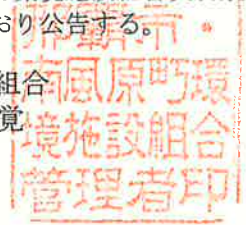 おり公告する。
組合
覚
那覇市・
南風原町環
境施設組合
管理者印